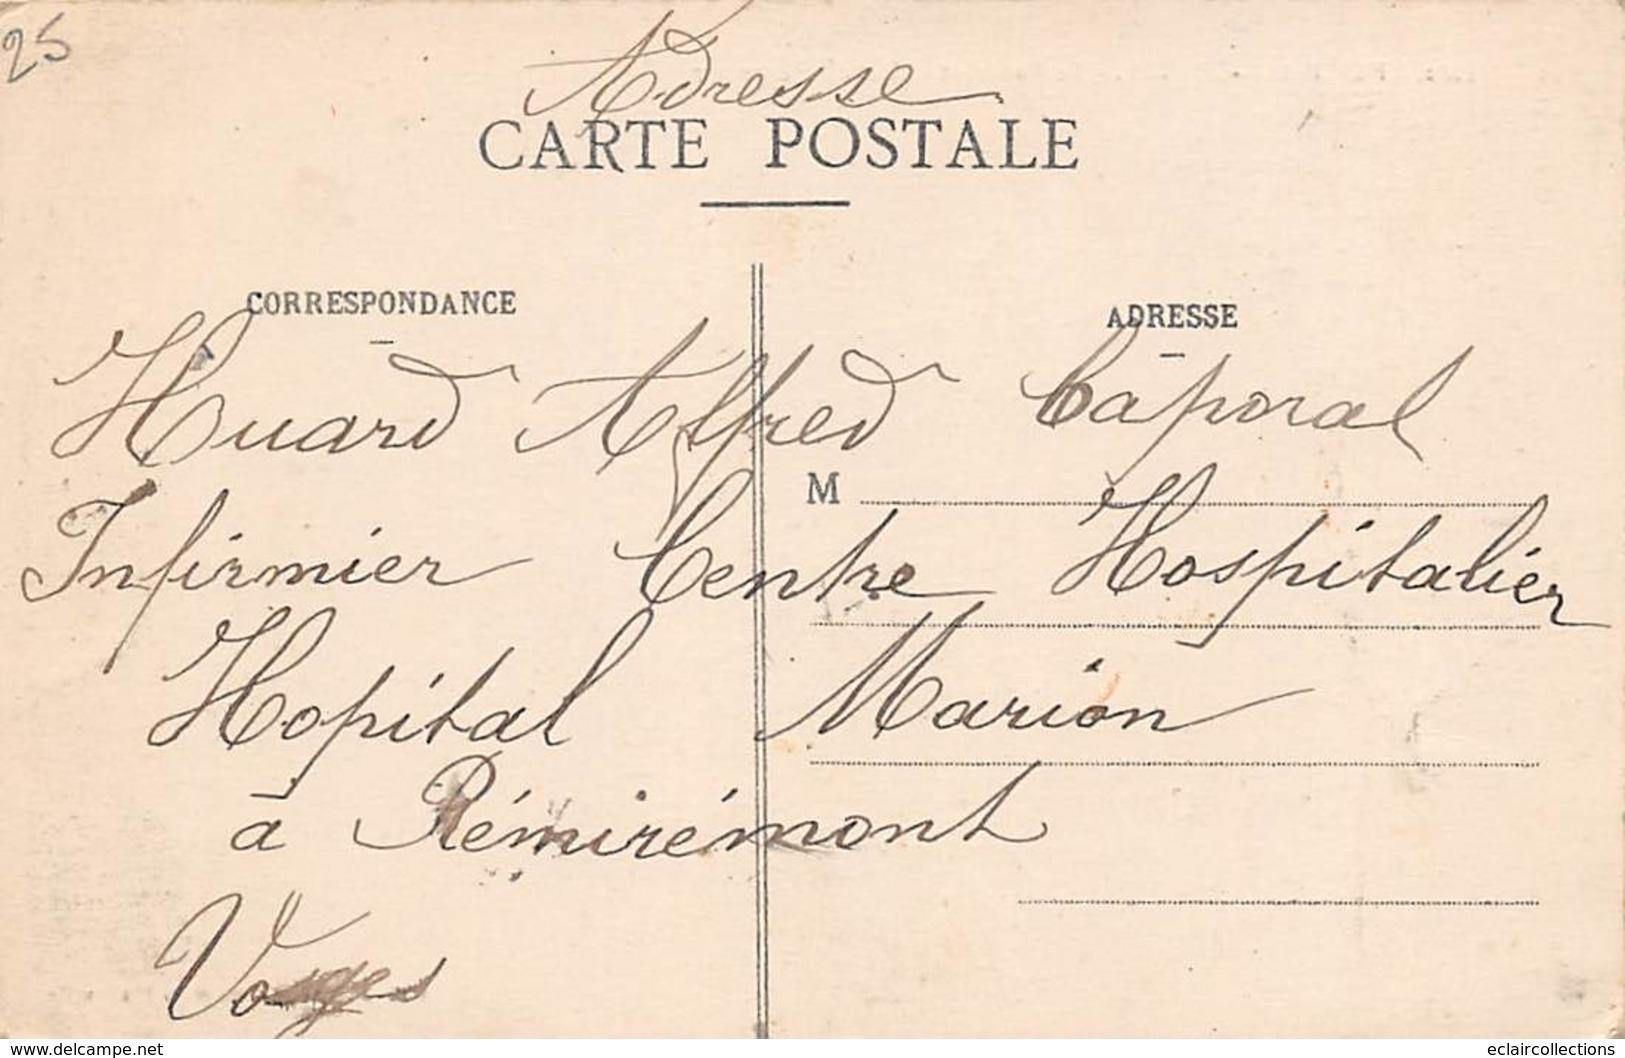 25
Adresse
CARTE POSTALE
CORRESPONDANCE
ADRESSE
Huard Alfred Caporal
M
Infirmier Centre Hospitalier
Hopital Marion
à Rémirémont
Vosges
www.delcampe.net
eclaircollections